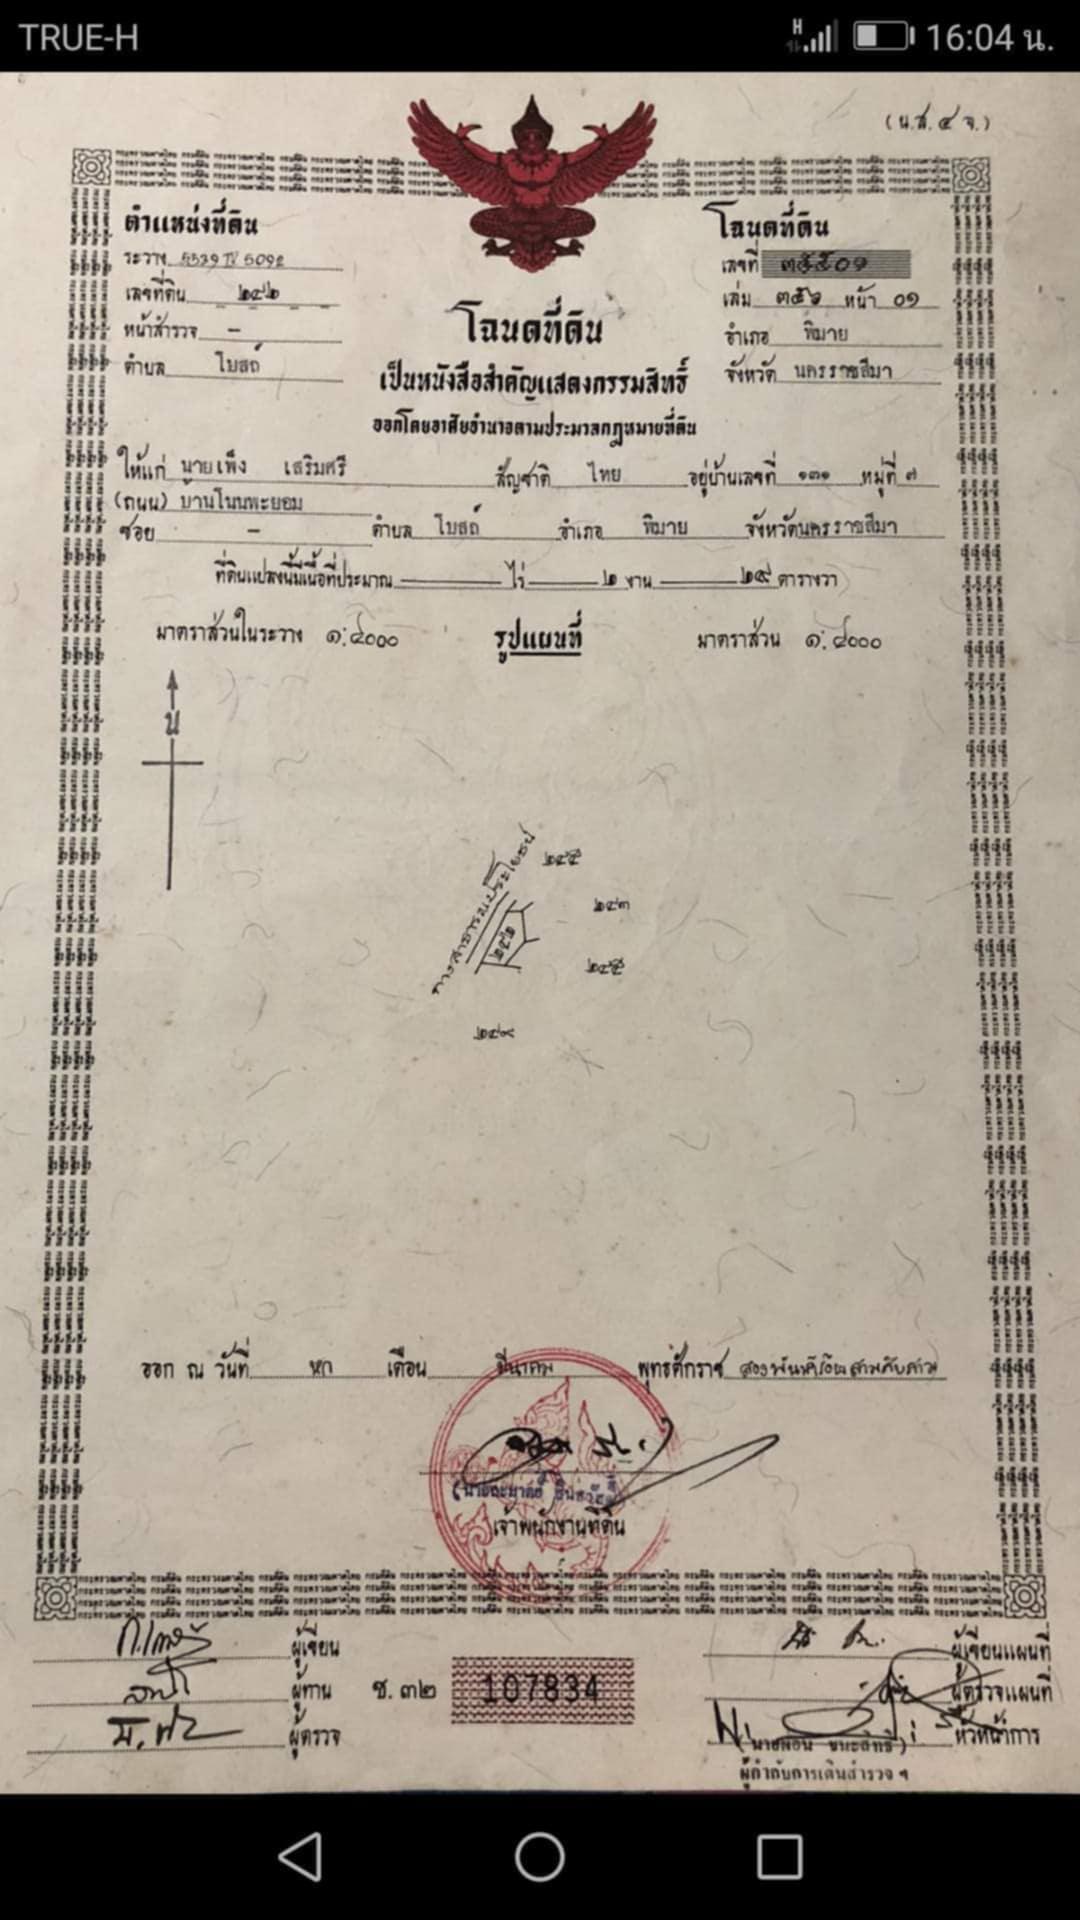 TRUE-H H 16:04 น.
(น.ส. ๔ จ.)
ตำแหน่งที่ดิน
ระวาง 5539 IV 5092
เลขที่ดิน ๒๔๒
หน้าสำรวจ –
ตำบล โบสถ์
โฉนดที่ดิน
เลขที่ ๓๕๕๐๑
เล่ม ๓๕๖ หน้า ๐๑
อำเภอ พิมาย
จังหวัด นครราชสีมา
โฉนดที่ดิน
เป็นหนังสือสำคัญแสดงกรรมสิทธิ์
ออกโดยอาศัยอำนาจตามประมวลกฎหมายที่ดิน
ให้แก่ นายเพ็ง เสริมศรี สัญชาติ ไทย อยู่บ้านเลขที่ ๑๓๑ หมู่ที่ ๗
(ถนน) บ้านโนนพะยอม
ซอย – ตำบล โบสถ์ อำเภอ พิมาย จังหวัดนครราชสีมา
ที่ดินแปลงนี้มีเนื้อที่ประมาณ ไร่ ๒ งาน ๒๙ ตารางวา
มาตราส่วนในระวาง ๑:๔๐๐๐ รูปแผนที่ มาตราส่วน ๑:๔๐๐๐
น
ทางสาธารณประโยชน์
๒๔๕
๒๔๓
๒๔๕
๒๔๙
ออก ณ วันที่ หก เดือน มีนาคม พุทธศักราช สองพันห้าร้อยสามสิบสาม
เจ้าพนักงานที่ดิน
ผู้เขียน
ผู้ทาน
ผู้ตรวจ
ช. ๓๒ 107834
ผู้เขียนแผนที่
ผู้ตรวจแผนที่
หัวหน้าการ
ผู้กำกับการเดินสำรวจ ฯ